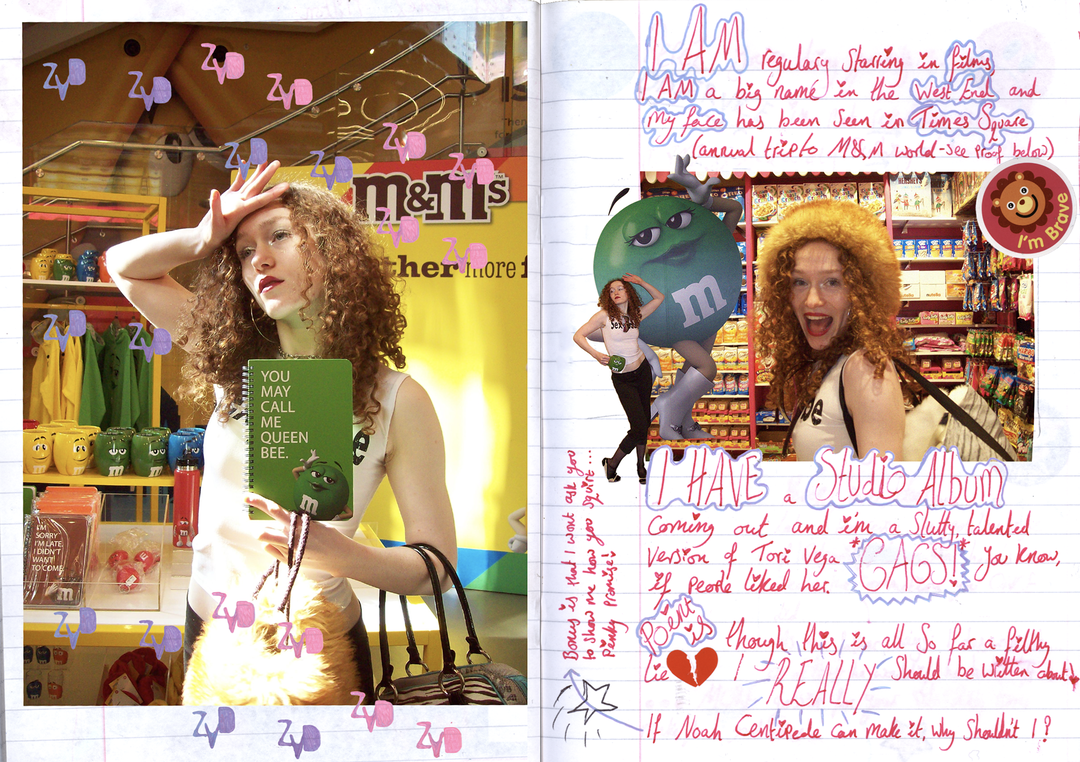 ZVD
ZVD
ZVD
ZVD
ZVD
ZVD
ZVD
ZVD
M&M's
ZVD
ZVD
ther more f
ZVD
ZVD
YOU
MAY
CALL
ME
QUEEN
BEE.
m
I'M
SORRY
I'M LATE.
I DIDN'T
WANT
TO COME.
ZVD
ZVD
ZVD
ZVD
ZVD
ZVD
ZVD
ZVD
I AM regulary starring in films
I AM a big name in the West End and
my face has been seen in Times Square
(annual trip to M&M world-see proof below)
HERSHEY'S
I'm Brave
m
Sexy
be
I HAVE a Studio Album
coming out and i'm a slutty, talented
version of Tori Vega *GAGS!* You know,
if people liked her.
Bonus is that I wont ask you
to show me how you squirt...
Pinky promise!
though this is all so far a filthy
lie I REALLY should be written about
If Noah Centipede can make it, why shouldn't I?